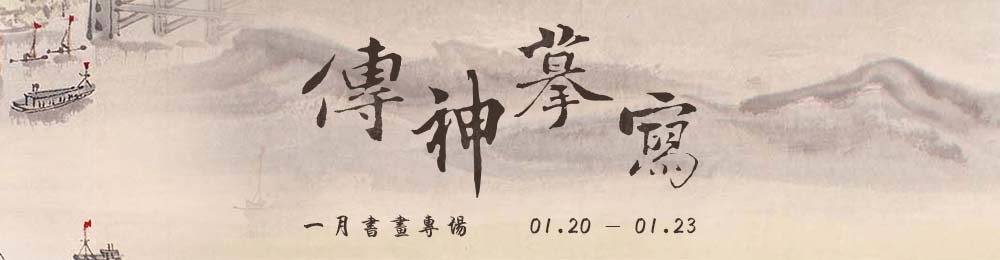 傳神摹寫
一月書畫專場 01.20 – 01.23